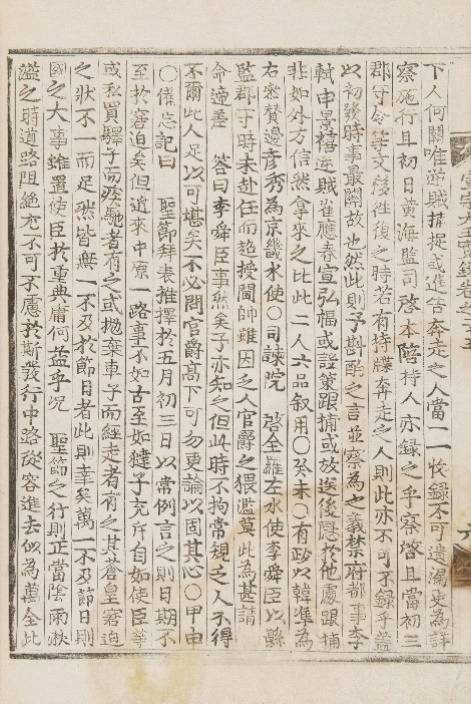 下人何關唯逆賊捕捉或進告奔走之人當一一收錄不可遺漏更爲詳
察施行且初日黃海監司 啓本陪持人亦錄之乎察啓且當初三
郡守令等文移往復之時若有持牒奔走之人則此亦不可不錄乎蓋
以初發時事最關故也然此則予斟酌之言並察爲也義禁府都事李
軾申景禧逆賊崔應春宣弘福或設策跟捕或放送後隱於他處跟捕
非如外方信然拿來之比此二人六品叙用○癸未○有政以韓準爲
右參贊邊彦秀爲京畿水使○司諫院 啓全羅左水使李舜臣以縣
監郡守時未赴任而超授閫帥雖因乏人官爵之猥濫莫此爲甚請
命遞差 答曰李舜臣事然矣予亦知之但此時不拘常規乏人不得
不爾此人足以可堪矣不必問官爵高下可勿更論以固其心○甲申
○備忘記曰 聖節拜表推擇於五月初三日以常例言之則日期不
至於窘迫矣但邇來中原一路事不如古至如㺚子充斥自如使臣等
或私買驛子而疾馳者有之或抛棄車子而經走者有之其蒼皇窘迫
之狀不一而足然皆無一不及於節日者此則幸矣萬一不及節日則
國之大事雖置使臣於重典庸何益乎况 聖節之行則正當陰雨淋
溢之時道路阻絶尤不可不慮於斯發行中路從容進去似爲萬全此